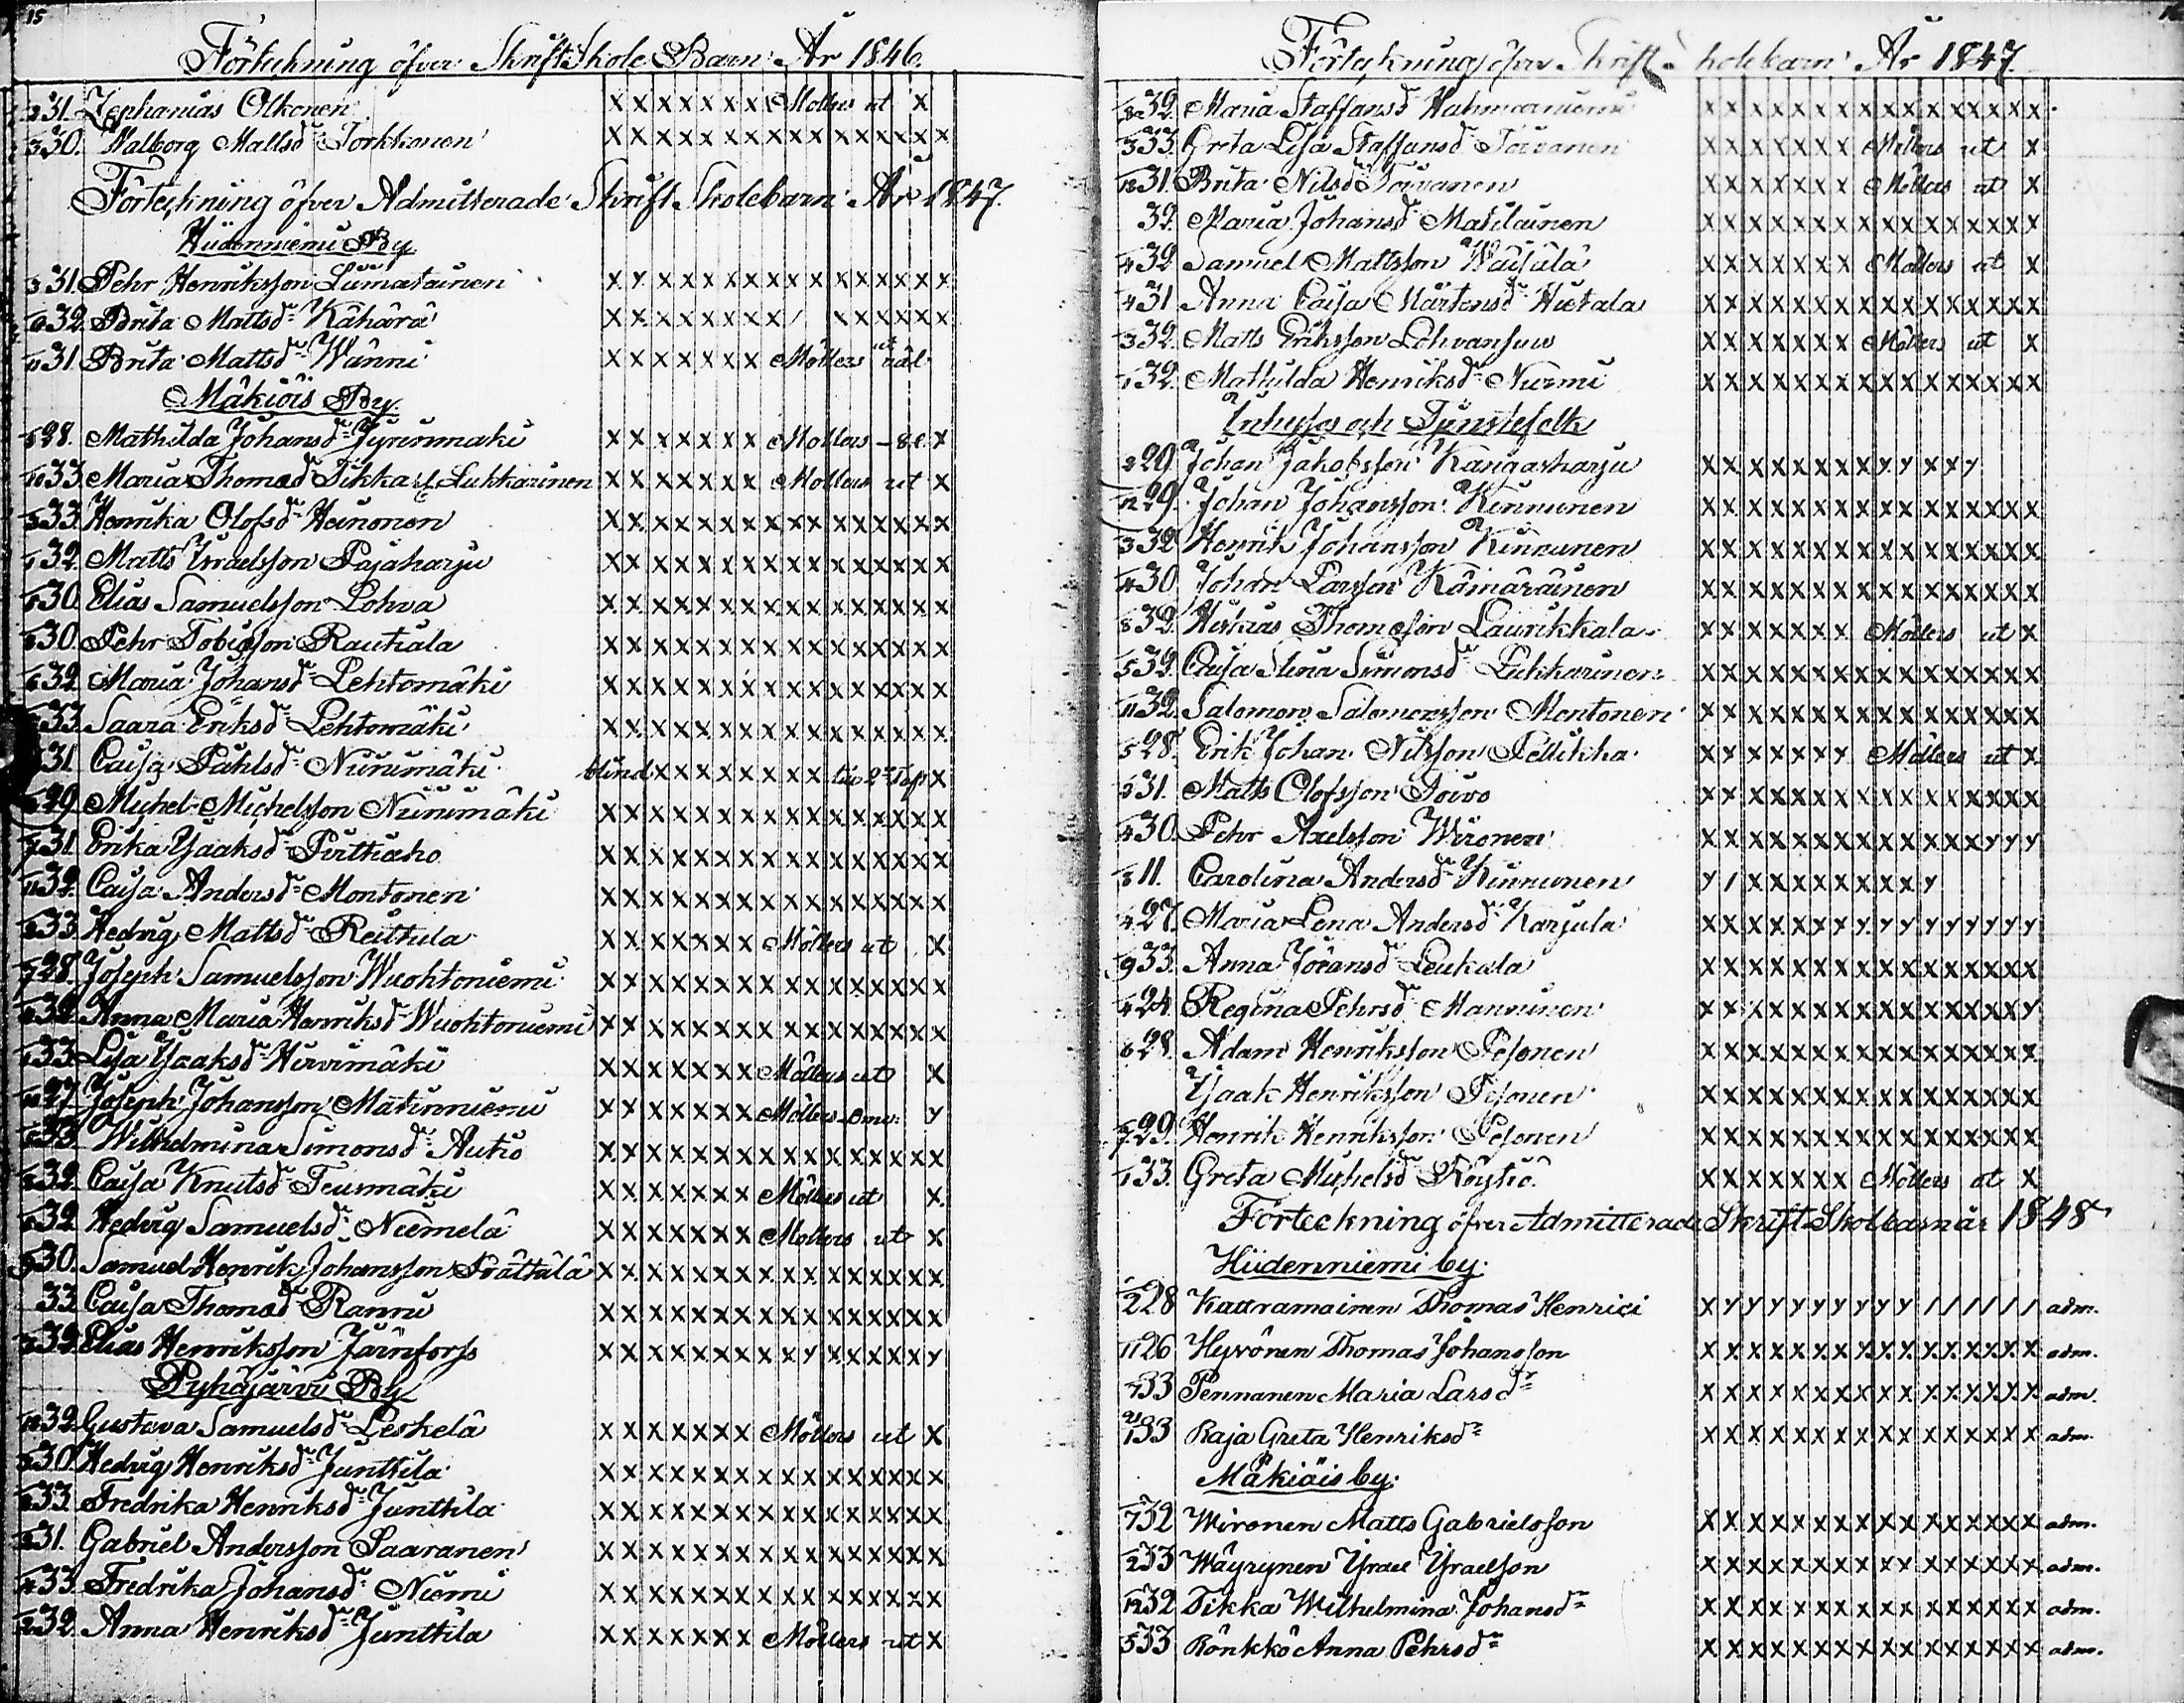 15
Förteckning öfver Skrift Skole Barn År 1846.
31. Zephanias Olkonen x x x x x x x Möllers ut x
30. Walborg Mattsdr Torkkonen x x x x x x x x x x x x x x x
Förteckning öfver Admitterade Skrift Skolebarn År 1847.
Hiidenniemi By
31. Pehr Henriksson Liimatainen x x x x x x x x x x x x x x x
32. Brita Mattsdr Kähärä x x x x x x x x / x x x x x x
31. Brita Mattsdr Wänni x x x x x x x Möllers
Mäkiöis By.
28. Mathilda Johansdr Jyrinmäki x x x x x x x Möllers x
33. Maria Thomasdr Tikka Luhkarinen x x x x x x x Möllers ut x
33. Henrika Olofsdr Heinonen x x x x x x x x x x x x x x x
32. Matts Israelsson Pajaharju x x x x x x x x x x x x x x x
30. Elias Samuelsson Lohva x x x x x x x x x x x x x x x
30. Pehr Tobiasson Rautiala x x x x x x x x x x x x x x x
32. Maria Johansdr Lehtomäki x x x x x x x x x x x x x x x
33. Saara Eriksdr Lehtomäki x x x x x x x x x x x x x x x
31. Caisa Påhlsdr Niinimäki blind x x x x x x x x x
29. Michel Michelsson Niinimäki x x x x x x x x x x x x x x x
31. Erika Isaaksdr Pirttiaho x x x x x x x x x x x x x x x
32. Caisa Andersdr Montonen x x x x x x x x x x x x x x x
33. Hedvig Mattsdr Reittula x x x x x x x Möllers ut x
28. Joseph Samuelsson Wuohtoniemi x x x x x x x x x x x x x x x
32. Anna Maria Henriksdr Wuohtoniemi x x x x x x x x x x x x x x x
33. Lisa Isaaksdr Hirvimäki x x x x x x x Möllers ut x
27. Joseph Johansson Matinniemi x x x x x x x Möllers y
33. Wilhelmina Simonsdr Autio x x x x x x x x x x x x x x x
32. Caisa Knutsdr Teirmäki x x x x x x x Möllers ut x
32. Hedvig Samuelsdr Niemelä x x x x x x x Möllers ut x
30. Samuel Henrik Johansson Prättälä x x x x x x x x x x x x x x x
33. Caisa Thomasdr Ranni x x x x x x x x x x x x x x x
32. Elias Henriksson Järnforss x x x x x x x x x y x x x x x y
Pyhäjärvi By
32. Gustava Samuelsdr Leskelä x x x x x x x Möllers ut x
30. Hedvig Henriksdr Junttila x x x x x x x x x x x x x x x
33. Fredrika Henriksdr Junttila x x x x x x x x x x x x x x x
31. Gabriel Andersson Saaranen x x x x x x x x x x x x x x x
33. Fredrika Johansdr Niemi x x x x x x x x x x x x x x x
32. Anna Henriksdr Junttila x x x x x x x Möllers ut x
Förteckning öfver Skrift Skolebarn År 1847.
32. Maria Staffansdr Hahmaniemi x x x x x x x x x x x x x x x
33. Greta Lisa Staffansdr Toivanen x x x x x x x Möllers ut x
31. Brita Nilsdr Toivanen x x x x x x x Möllers ut x
32. Maria Johansdr Matilainen x x x x x x x x x x x x x x x
32. Samuel Mattsson Wäisälä x x x x x x x Möllers ut x
31. Anna Caisa Mårtensdr Hietala x x x x x x x x x x x x x x x
32. Matts Eriksson Lohvansuu x x x x x x x Möllers ut x
32. Mathilda Henriksdr Nurmi x x x x x x x x x x x x x x x
Inhyses och Tjenstefolk
29. Johan Jakobsson Kangasharju x x x x x x x x y y x x y
29. Johan Johansson Kinnunen x x x x x x x x x x x x x x x
32. Henrik Johansson Kinnunen x x x x x x x x x x x x x x x
30. Johan Larsson Kämäräinen x x x x x x x x x x x x x x x
32. Hiskias Thomasson Laurikkala x x x x x x x Möllers ut x
32. Caisa Stina Simonsdr Luhkarinen x x x x x x x x x x x x x x x
32. Salomon Salomonsson Montonen x x x x x x x x x x x x x x x
28. Erik Johan Nilsson Pellikka x x x x x x y Möllers ut x
31. Matts Olofsson Toivo x x x x x x x x x x x x x x x
30. Pehr Axelsson Wironen x x x x x x x x x x x x y y y
11. Carolina Andersdr Kinnunen y / x x x x x x x x y
27. Maria Lena Andersdr Karjula x x x x x x x y y y y y y y y
33. Anna Jöransdr Leukala x x x x x x x x x x x x x x x
24. Regina Pehrsdr Manninen x x x x x x x x x x x x x x y
28. Adam Henriksson Pesonen x x x x x x x x x x x x x x x
Isaak Henriksson Pesonen x x x x x x x x x x x x x x x
29. Henrik Henriksson Pesonen x x x x x x x x x x x x x x x
33. Greta Michelsdr Röytiö x x x x x x x Möllers ut x
Förteckning öfver Admitterade Skrift Skolbarn år 1848
Hiidenniemi by:
28 Kattramainen Thomas Henrici x y y y y y y y y y / / / / / adm.
26 Hyvönen Thomas Johansson x x x x x x x x x x x x x x x adm.
33 Pennanen Maria Larsdr x x x x x x x x x x x x x x x adm.
33 Raja Greta Henriksdr x x x x x x x x x x x x x x x adm.
Mäkiäis by:
32 Wironen Matts Gabrielsson x x x x x x x x x x x x x x x adm.
33 Wäyrynen Israel Israelson x x x x x x x x x x x x x x x adm.
32 Tikka Wilhelmina Johansdr x x x x x x x x x x x x x x x adm.
33 Rönkkö Anna Pehrsdr x x x x x x x x x x x x x x x adm.